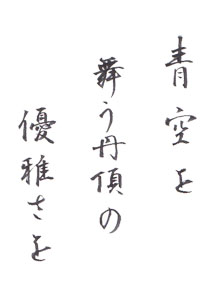 青空を
舞う丹頂の
優雅さを